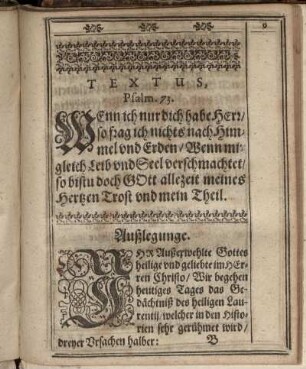 TEXTUS,
Psalm. 73.
WEnn ich nur dich habe Herr/
so frag ich nichts nach Him-
mel vnd Erden/ Wenn mir
gleich Leib vnd Seel verschmachtet/
so bistu doch GOtt allezeit meines
Hertzen Trost vnd mein Theil.
Außlegunge.
IHR Außerwehlte Gottes
heilige vnd geliebte im HEr-
ren Christo/ Wir begehen
heutiges Tages das Ge-
dächtniß des heiligen Lau-
rentij/ welcher in den Histo-
rien sehr gerühmet wird/
dreyer Vrsachen halber: B